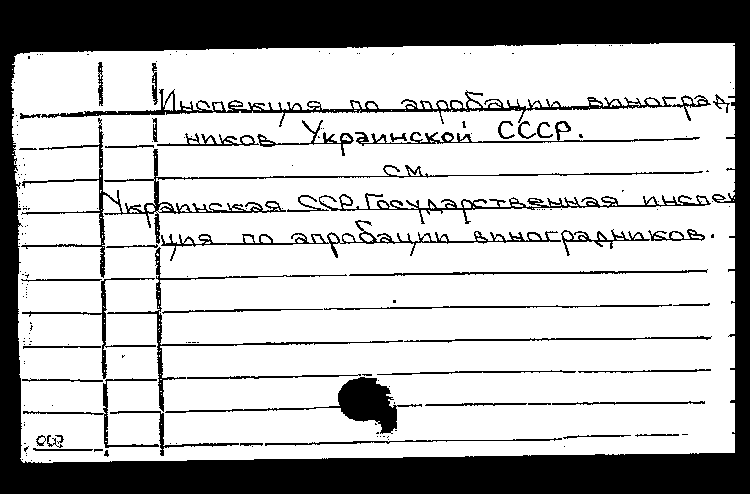 Инспекция по апробации виноград-
ников Украинской СССР.
см.
Украинская ССР. Государственная инспек
ция по апробации виноградников.